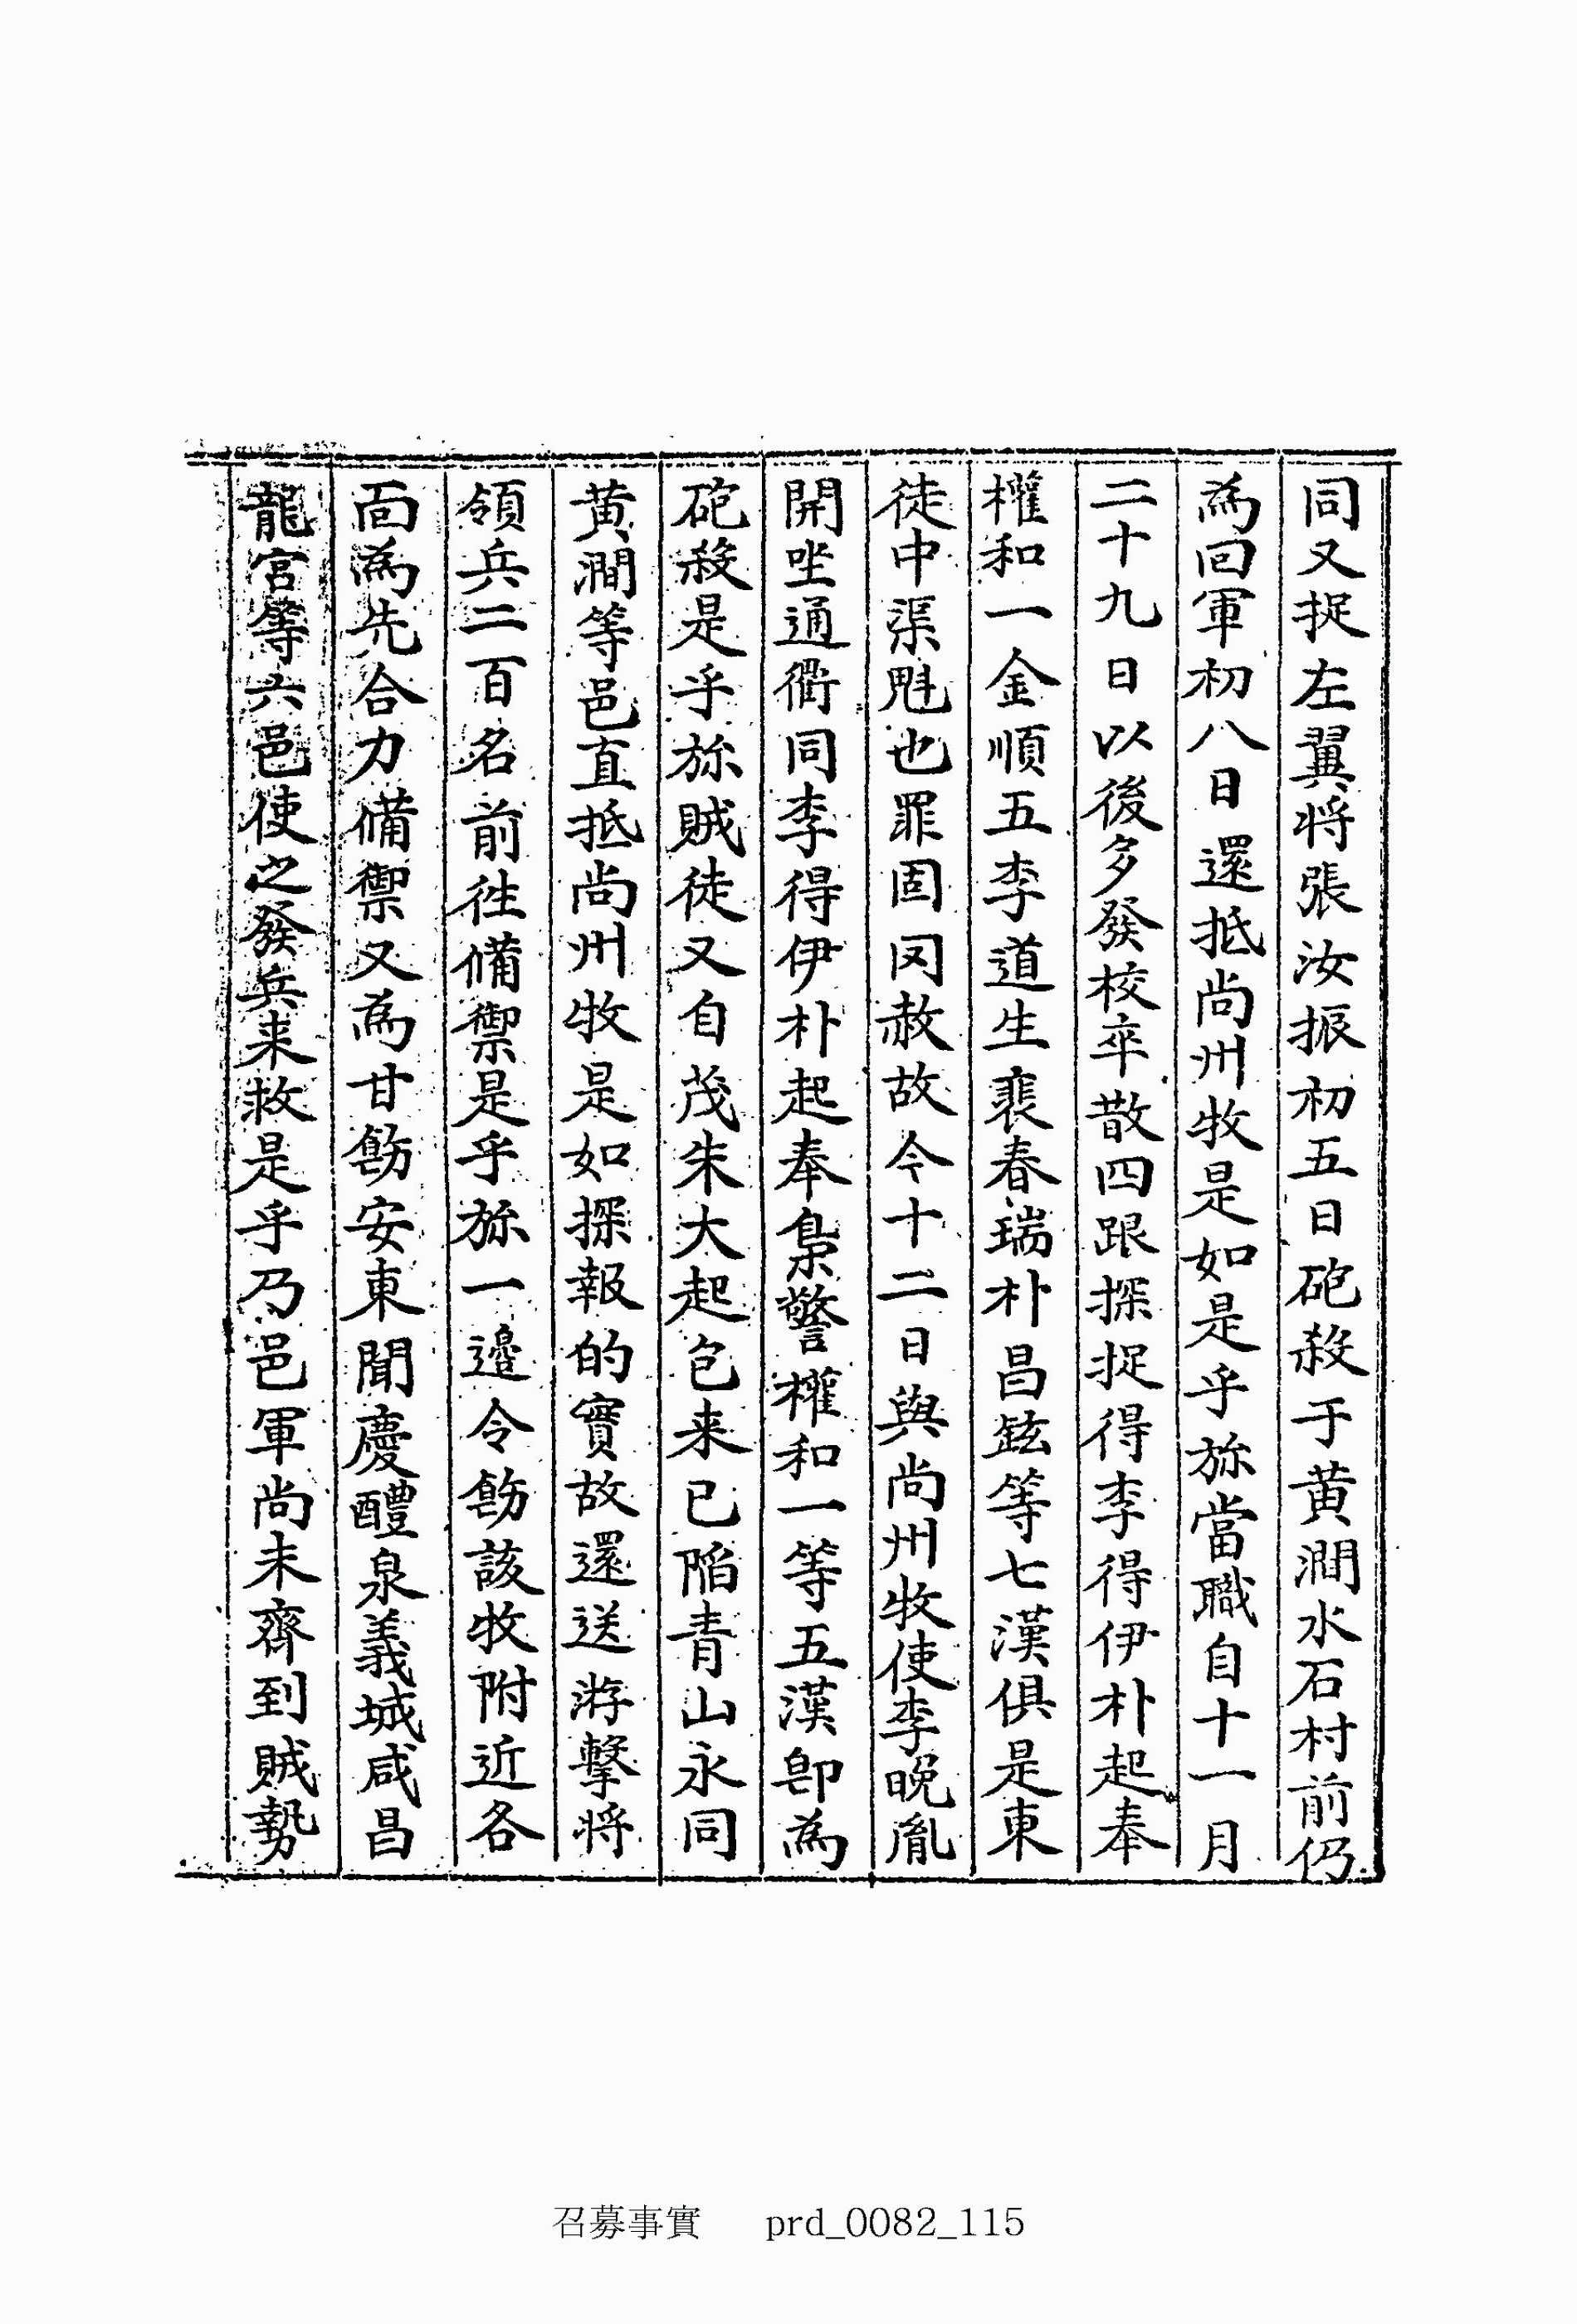 同又捉左翼将張汝振初五日砲殺于黄澗水石村前仍
為回軍初八日還抵尚州牧是如是乎旀當職自十一月
二十九日以後多發校卒散四跟探捉得李得伊朴起奉
權和一金順五李道生裵春瑞朴昌鉉等七漢俱是東
徒中渠魁也罪固罔赦故今十二日與尚州牧使李晩胤
開坐通衢同李得伊朴起奉梟警權和一等五漢卽為
砲殺是乎旀賊徒又自茂朱大起包来已陷青山永同
黄澗等邑直抵尚州牧是如探報的實故還送游擊将
領兵二百名前徃備禦是乎旀一邊令飭該牧附近各
面為先合力備禦又為甘飭安東聞慶醴泉義城咸昌
龍宮等六邑使之發兵来救是乎乃邑軍尚未齊到賊勢
召募事實 prd_0082_115